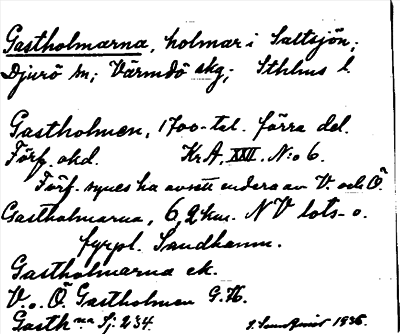 Gastholmarna, holmar i Saltsjön;
Djurö sn; Värmdö skg; Sthlms l.
Gastholmen, 1700-tal. förra del.
Förf. okd. Kr.A, XXII. N:o 6.
Förf. synes ha avsett endera av V. och Ö.
Gastholmarna, 6,2 km. NV lots- o.
fyrpl. Sandhamn.
Gastholmarna ek.
V. o. Ö. Gastholmen G.K.
Gasth na Sj: 234. 1936.